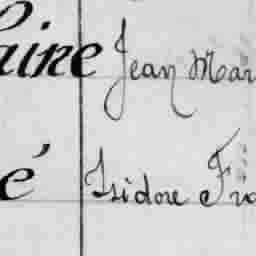 aine Jean Mar
é Isidore Fra